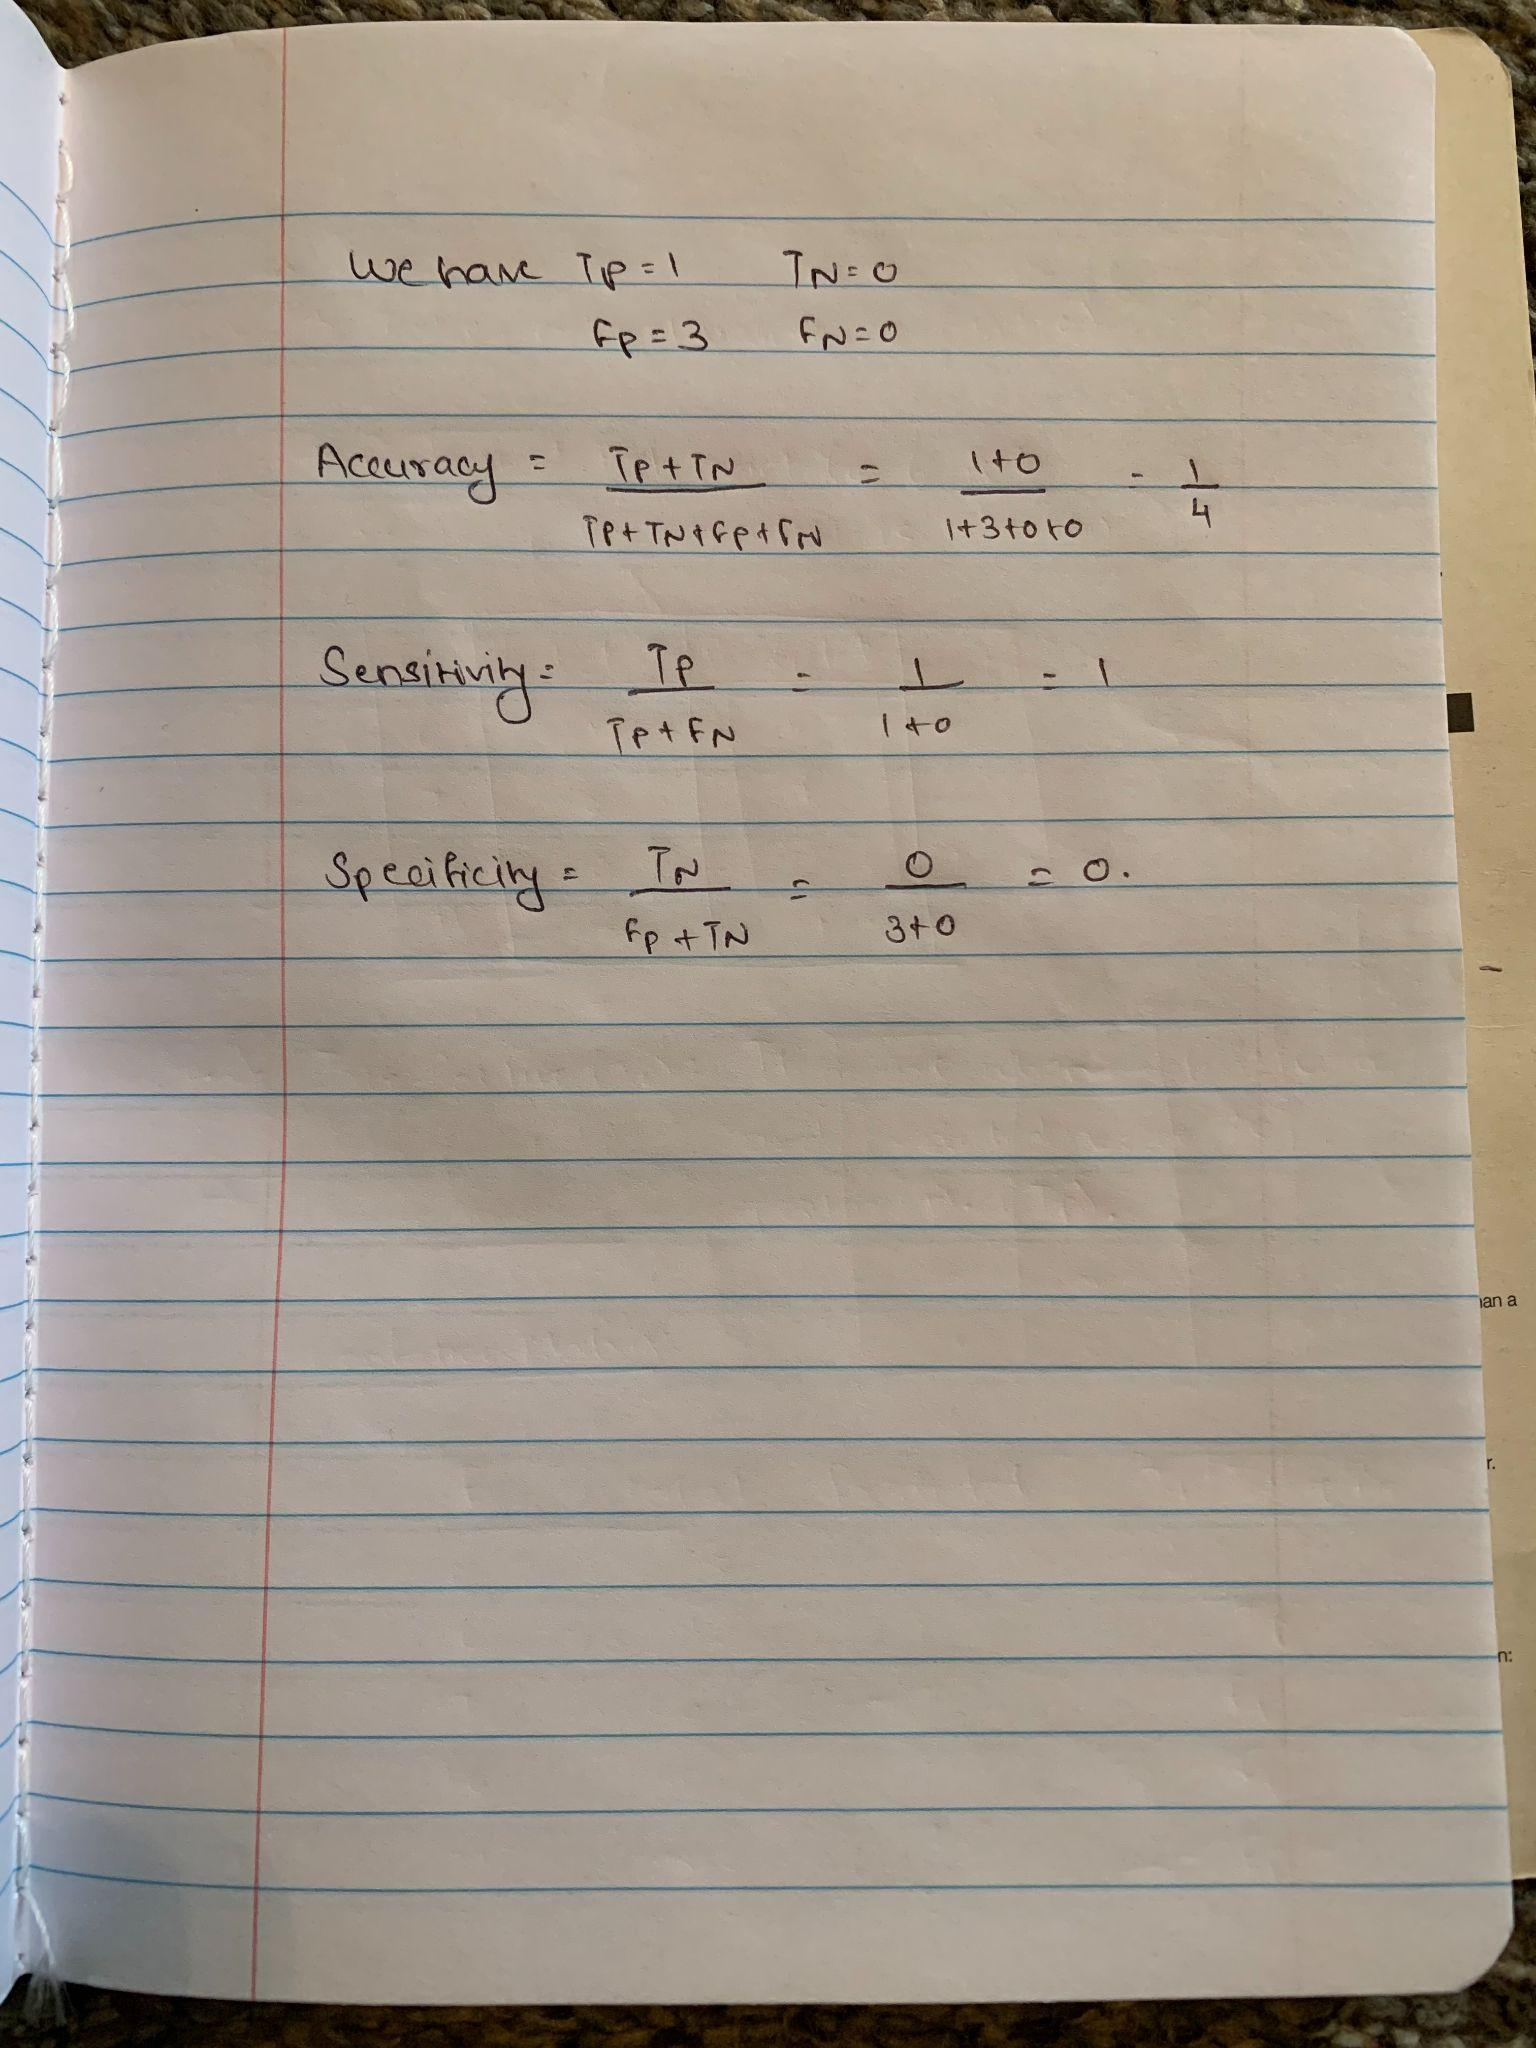 We have TP = 1 TN = 0
FP = 3 FN = 0
Accuracy = TP + TN / TP + TN + FP + FN = 1+0 / 1+3+0+0 = 1/4
Sensitivity = TP / TP + FN = 1 / 1+0 = 1
Specificity = TN / FP + TN = 0 / 3+0 = 0.
an a
r.
n: